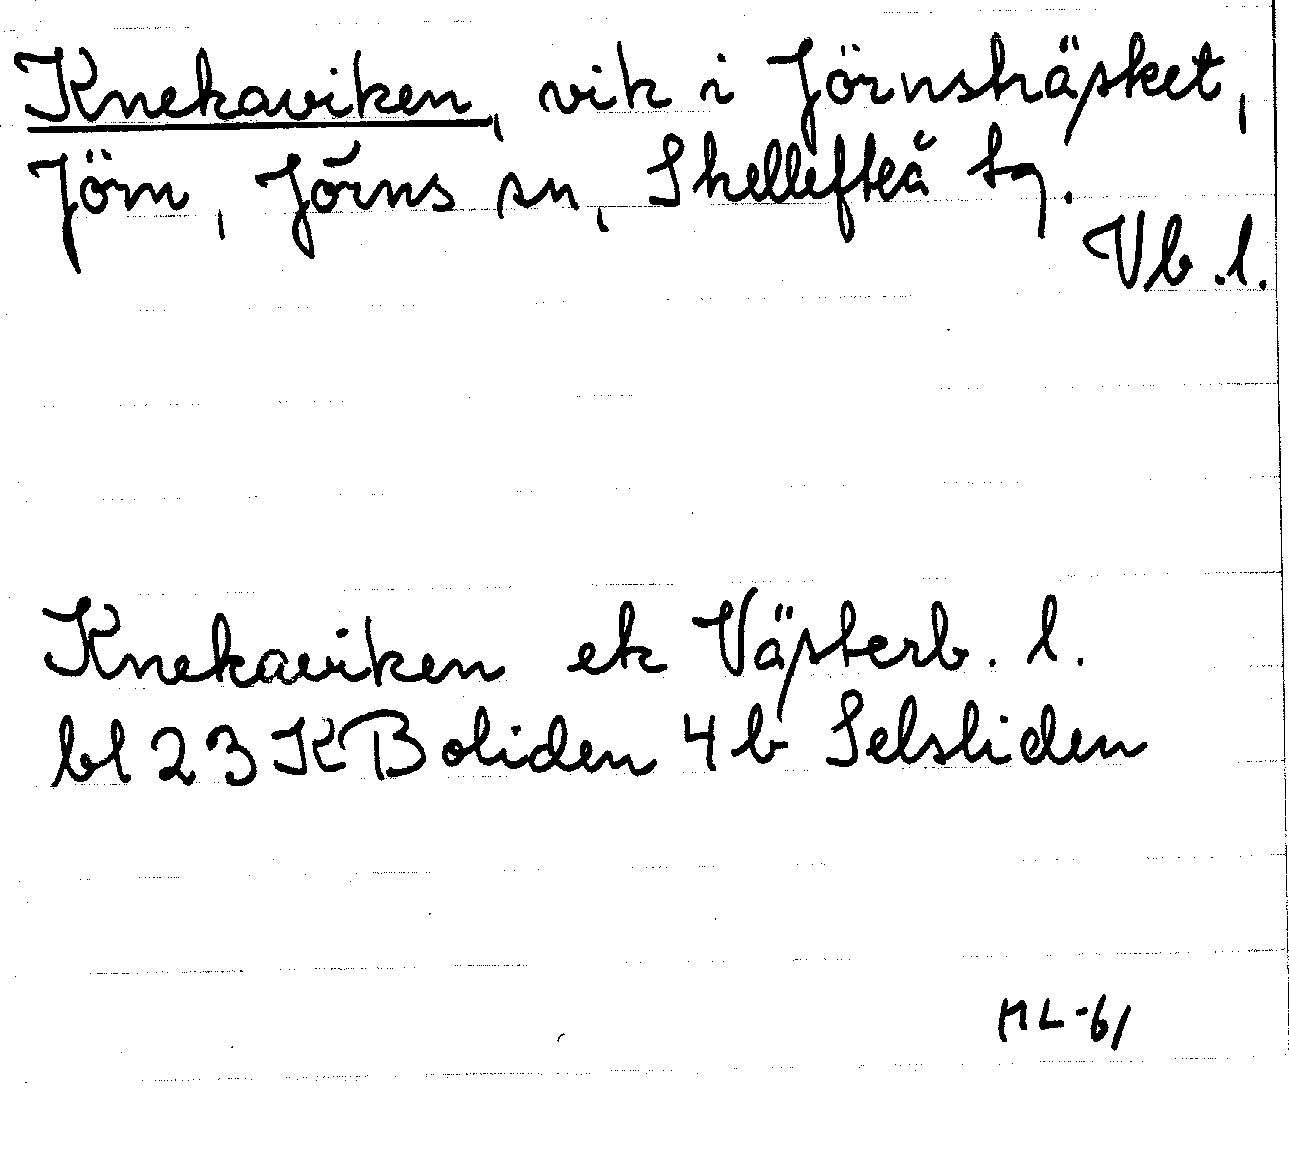 Knekaviken, vik i Jörnsträsket,
Jörn, Jörns sn, Skellefteå tg.
Vb.l.
Knekaviken ek Västerb. l.
bl 23 K Boliden 4 b Selsliden
ML-61